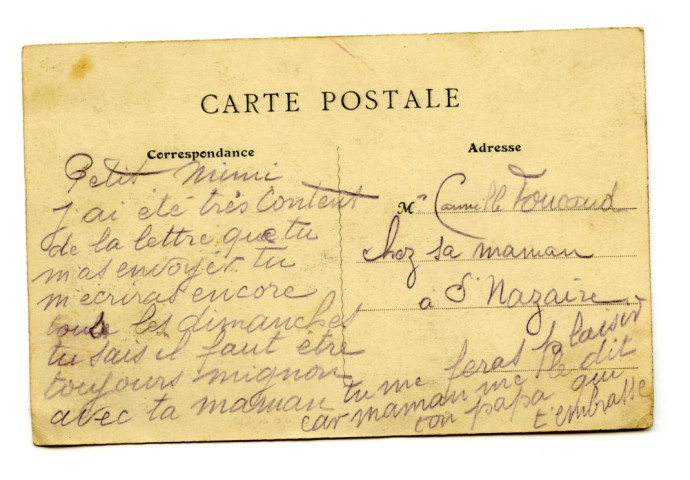 CARTE POSTALE
Correspondance
Adresse
Petit mimi
j'ai été très Content
de la lettre que tu
m'as envoyer tu
m'écriras encore
tous les dimanches
tu sais il faut être
toujours mignon
avec ta maman tu me feras plaisir
car maman me le dit
ton papa qui
t'embrasse
Mr Camille
chez sa maman
à St Nazaire